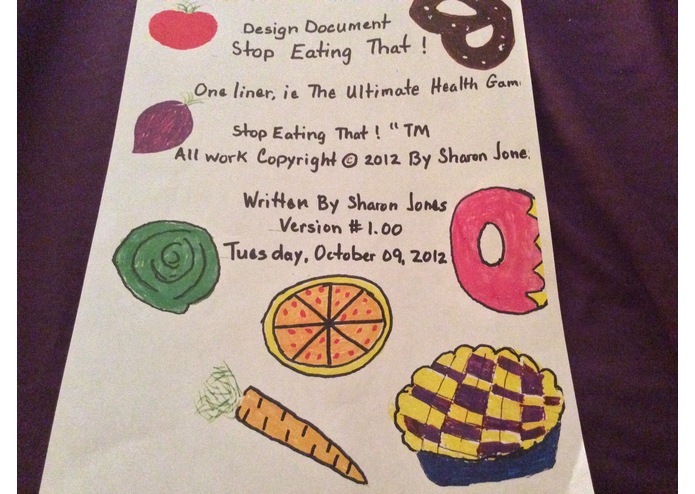 Design Document
Stop Eating That !
One liner, ie The Ultimate Health Gam
Stop Eating That ! " TM
All work Copyright © 2012 By Sharon Jone
Written By Sharon Jones
Version # 1.00
Tuesday, October 09, 2012